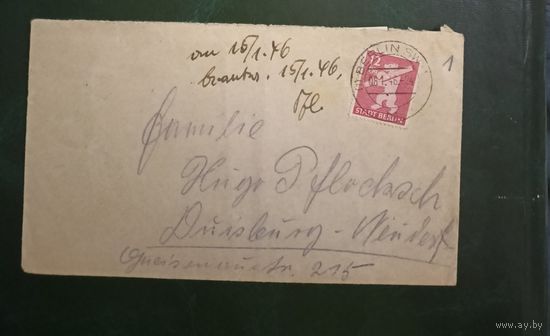 an 15/1.46
beantw. 15/1.46.
12
STADT BERLIN
BERLIN SW
1
Familie
Hugo Pflocksch
Duisburg-Neudorf
Gneisenaustr. 215
www.ay.by